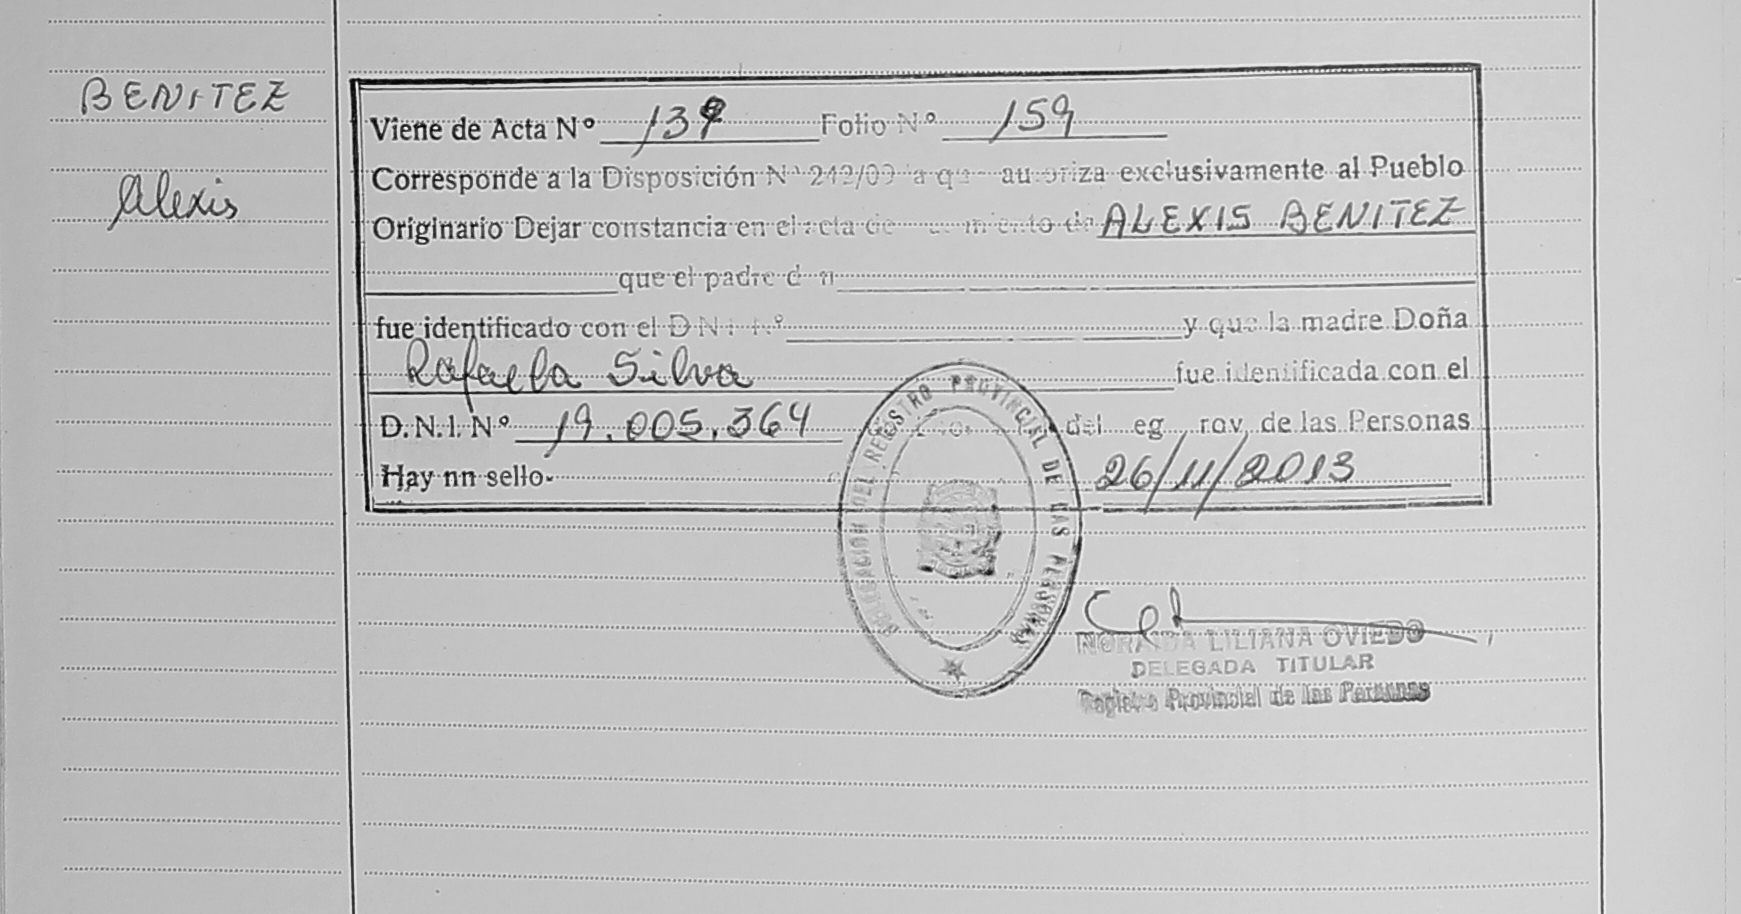 BENITEZ
Alexis
Viene de Acta Nº 139 Folio Nº 159
Corresponde a la Disposición Nº 242/09 la que autoriza exclusivamente al Pueblo
Originario Dejar constancia en el acta de de ALEXIS BENITEZ
que el padre
fue identificado con el D.N.I. Nº y que la madre Doña
Rafaela Silva fue identificada con el
D.N.I. Nº 19.005.364 del eg rov de las Personas
Hay nn sello- 26/11/2013
DELEGACION DEL REGISTRO PROVINCIAL DE LAS PERSONAS
LILIANA OVIEDO
DELEGADA TITULAR
Registro Provincial de las Personas